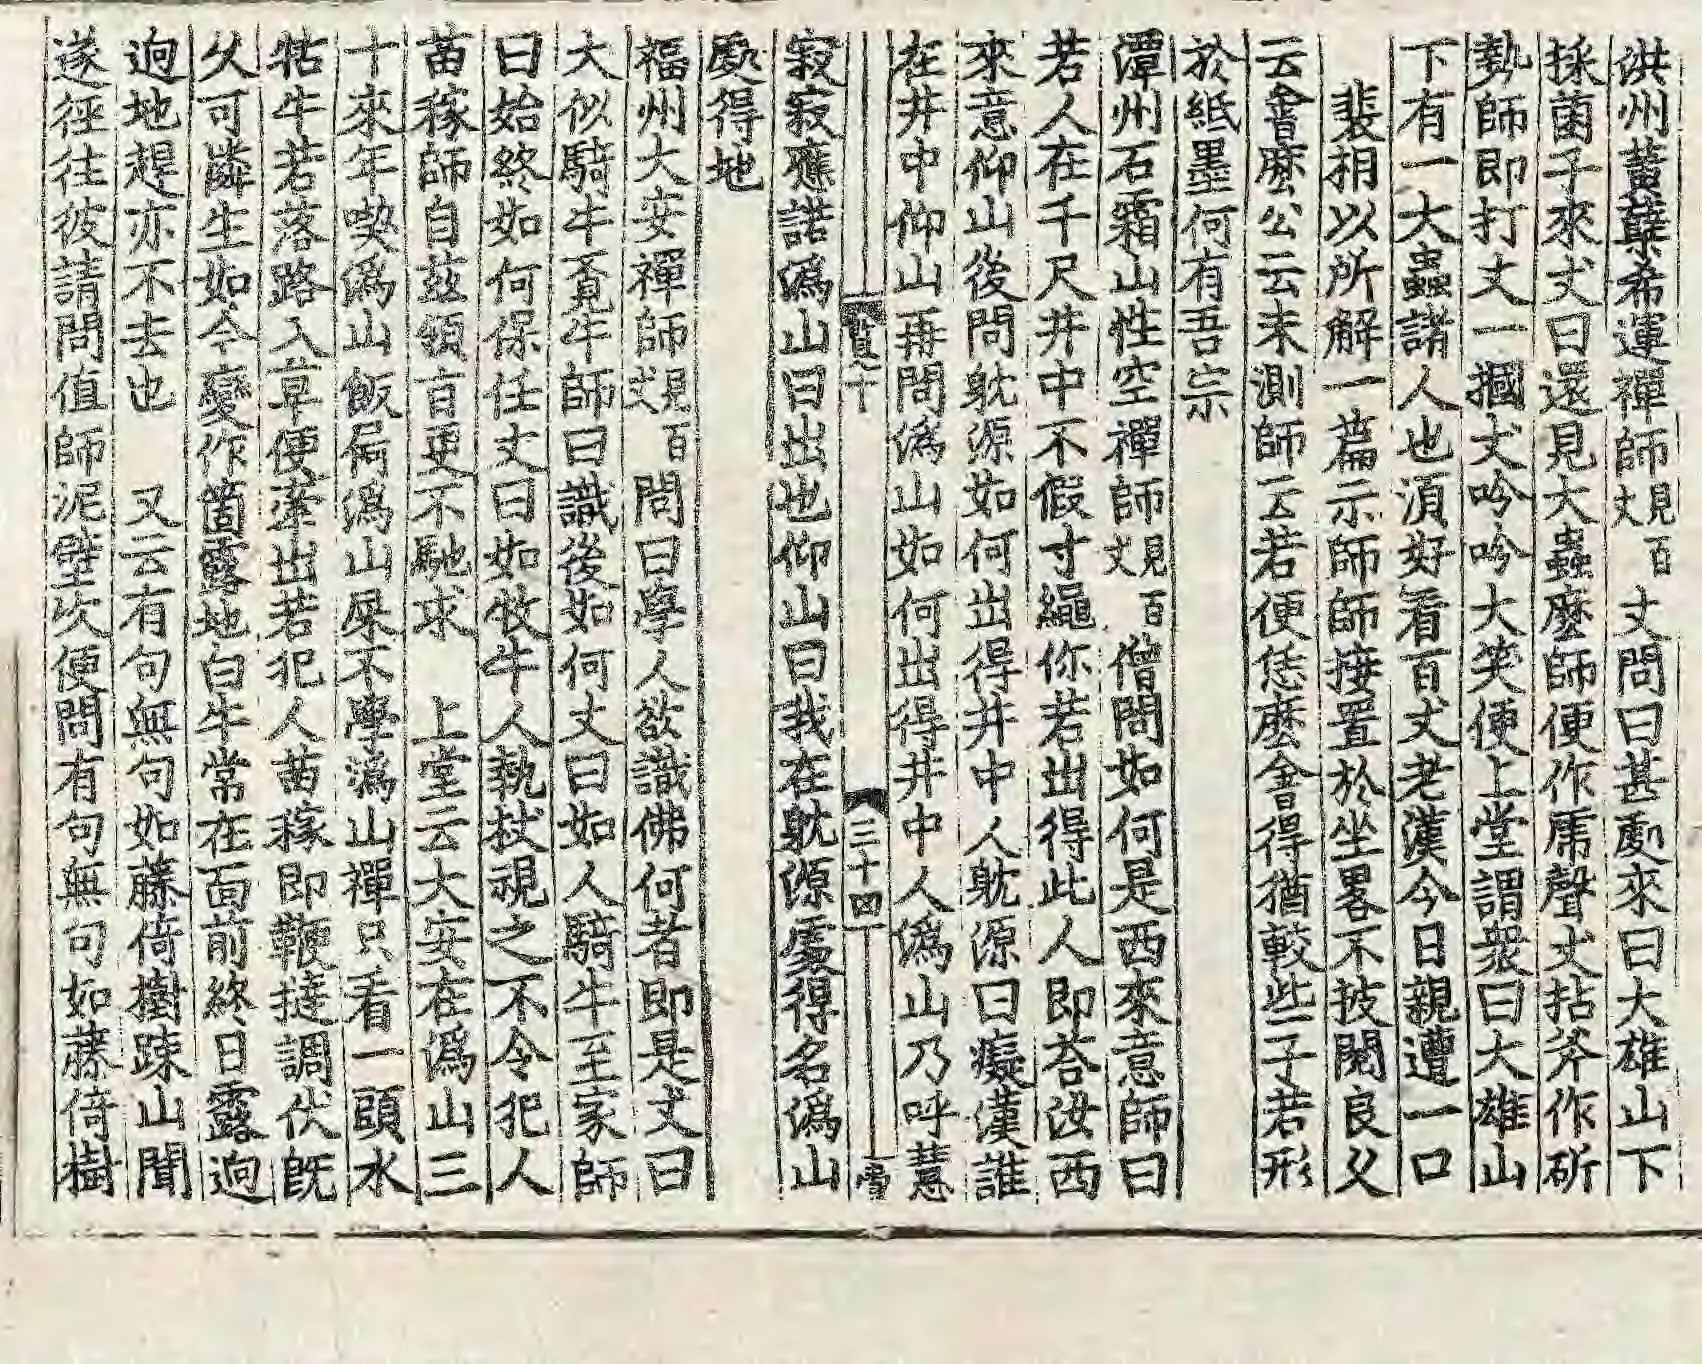 洪州黃蘗希運禪師見百丈 丈問曰甚處來曰大雄山下
採菌子來丈曰還見大蟲麽師便作虎聲丈拈斧作斫
勢師即打丈一摑丈吟吟大笑便上堂謂衆曰大雄山
下有一大蟲諸人也湏好看百丈老漢今日親遭一口
裴相以所解一篇示師師接置於坐畧不披閱良久
云會麽公云未測師云若便恁麽會得猶較些子若形
於紙墨何有吾宗
潭州石霜山性空禪師見百丈 僧問如何是西來意師曰
若人在千尺井中不假寸繩你若出得此人即荅汝西
來意仰山後問躭源如何出得井中人躭源曰癡漢誰
在井中仰山再問潙山如何出得井中人潙山乃呼慧
寂寂應諾潙山曰出也仰山曰我在躭源處得名潙山
處得地
福州大安禪師見百丈 問曰學人欲識佛何者即是丈曰
大似騎牛覔牛師曰識後如何丈曰如人騎牛至家師
曰始終如何保任丈曰如牧牛人執杖視之不令犯人
苗稼師自茲領旨更不馳求 上堂云大安在潙山三
十來年喫潙山飯屙潙山屎不學潙山禪只看一頭水
牯牛若落路入草便牽出若犯人苗稼即鞭撻調伏旣
久可憐生如今變作箇露地白牛常在面前終日露逈
逈地趕亦不去也 又云有句無句如藤倚樹踈山聞
遂徑往彼請問值師泥壁次便問有句無句如藤倚樹
三十四